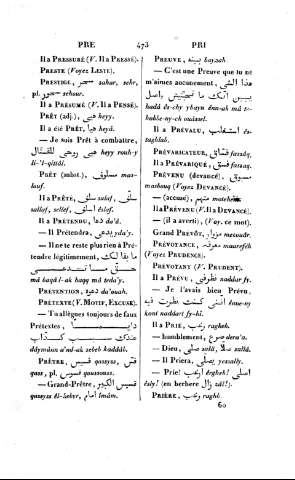 PRE 473 PRI
Il a PRESSURÉ (V. Il a PRESSÉ).
PRESTE (Voyez LESTE).
PRESTIGE, سحر sahar, sehr,
pl. سحور sehour.
Il a PRÉSUMÉ (V. Il a PENSÉ).
PRÊT (adj.), هيى heyy.
Il a été PRÊT, هيى heyä.
— Je suis Prêt à combattre,
هيى روحى للقتال heyy rouh-y
li-'l-qitäl.
PRÊT (subst.), مسلوف mas-
louf.
Il a PRÊTÉ, سلف salaf, سلف
sallaf, sellef, اسلف eslef.
Il a PRÉTENDU, دعا da'ä.
— Il Prétendra, يدعى yda'y.
— Il ne te reste plus rien à Pré-
tendre légitimement, ما بقا لك
حق ما تدعى
mä baqä l-ak haqq mä teda'y.
PRÉTENTION, دعوه da'oueh.
PRÉTEXTE (V. MOTIF, EXCUSE).
— Tu allègues toujours de faux
Prétextes, دايما
عندك سبب كذاب
däymänn a'nd-ak sebeb kaddäb.
PRÊTRE, قسيس qasyss,
qass, pl. قسوس qousouss.
— Grand-Prêtre, قسيس الكبير
qasyss êl-kebyr, امام Imäm.
PREUVE, بينه bayneh.
— C'est une Preuve que tu ne
m'aimes aucunement, هذا الشى
يبين انك ما تحبنيش باصل
hadä ês-chy ybayn enn-ak mä te-
hubbe-ny-ch ouässel.
Il a PRÉVALU, استغلب es-
taghlab.
PRÉVARICATEUR, فاسق fasaq.
Il a PRÉVARIQUÉ, فسق fassaq.
PRÉVENU (devancé), مسبوق
masbouq (Voyez DEVANCÉ).
— (accusé), متهم
Il a PRÉVENU (V. Il a DEVANCÉ).
— (il a averti), (Voy. ce mot).
Grand PREVÔT,
PRÉVOYANCE, معرفه maarefeh
(Voyez PRUDENCE).
PRÉVOYANT (V. PRUDENT).
Il a PRÉVU, نظر فى naddar fy.
— Je l'avais bien Prévu,
انى كنت نظرت فيه énn-ny
kont naddart fy-h.
Il a PRIÉ, رغب ragheb.
— humblement, ضرع dera'a.
— Dieu, صلى sallä, صلا sallä.
— Il Priera, يصلى yessally.
— Prie! ارغب érgheb! اصلى
ésly! (en berbere زال zäl!).
PRIÈRE, رغب raghb.
60